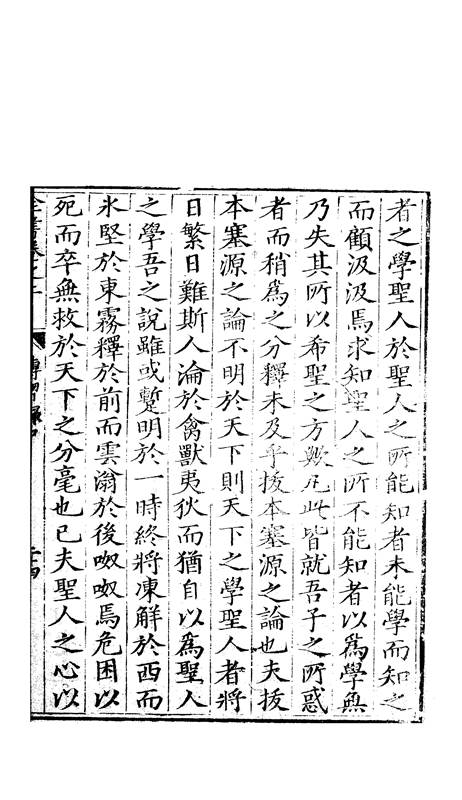 者之學聖人於聖人之所能知者未能學而知之
而顧汲汲焉求知聖人之所不能知者以為學無
乃失其所以希聖之方歟凡此皆就吾子之所惑
者而稍為之分釋未及乎拔本塞源之論也夫拔
本塞源之論不明於天下則天下之學聖人者將
日繁日難斯人淪於禽獸夷狄而猶自以為聖人
之學吾之說雖或蹔明於一時終將凍解於西而
氷堅於東霧釋於前而雲滃於後呶呶焉危困以
死而卒無救於天下之分毫也已夫聖人之心以
全書卷之二
傳習錄中